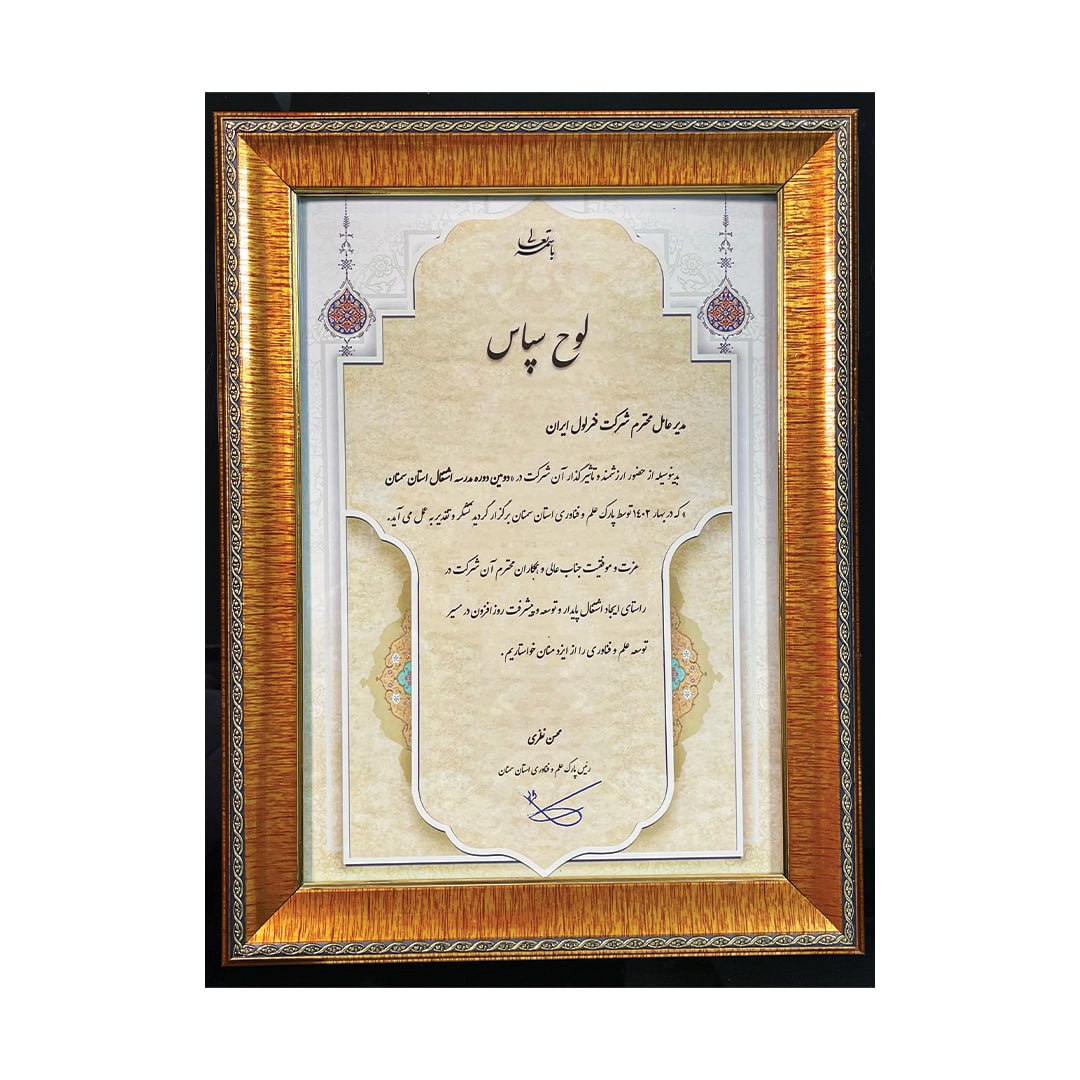 باسمه تعالی
لوح سپاس
مدیر عامل محترم شرکت فنرلول ایران
بدینوسیله از حضور ارزشمند و تأثیرگذار آن شرکت در «دومین دوره مدرسه اشتغال استان سمنان
» که در بهار ۱۴۰۲ توسط پارک علم و فناوری استان سمنان برگزار گردید تشکر و تقدیر به عمل می آید.
عزت و موفقیت جناب عالی و همکاران محترم آن شرکت در
راستای ایجاد اشتغال پایدار و توسعه و پیشرفت روز افزون در مسیر
توسعه علم و فناوری را از ایزد منان خواستاریم.
محسن نظری
رئیس پارک علم و فناوری استان سمنان